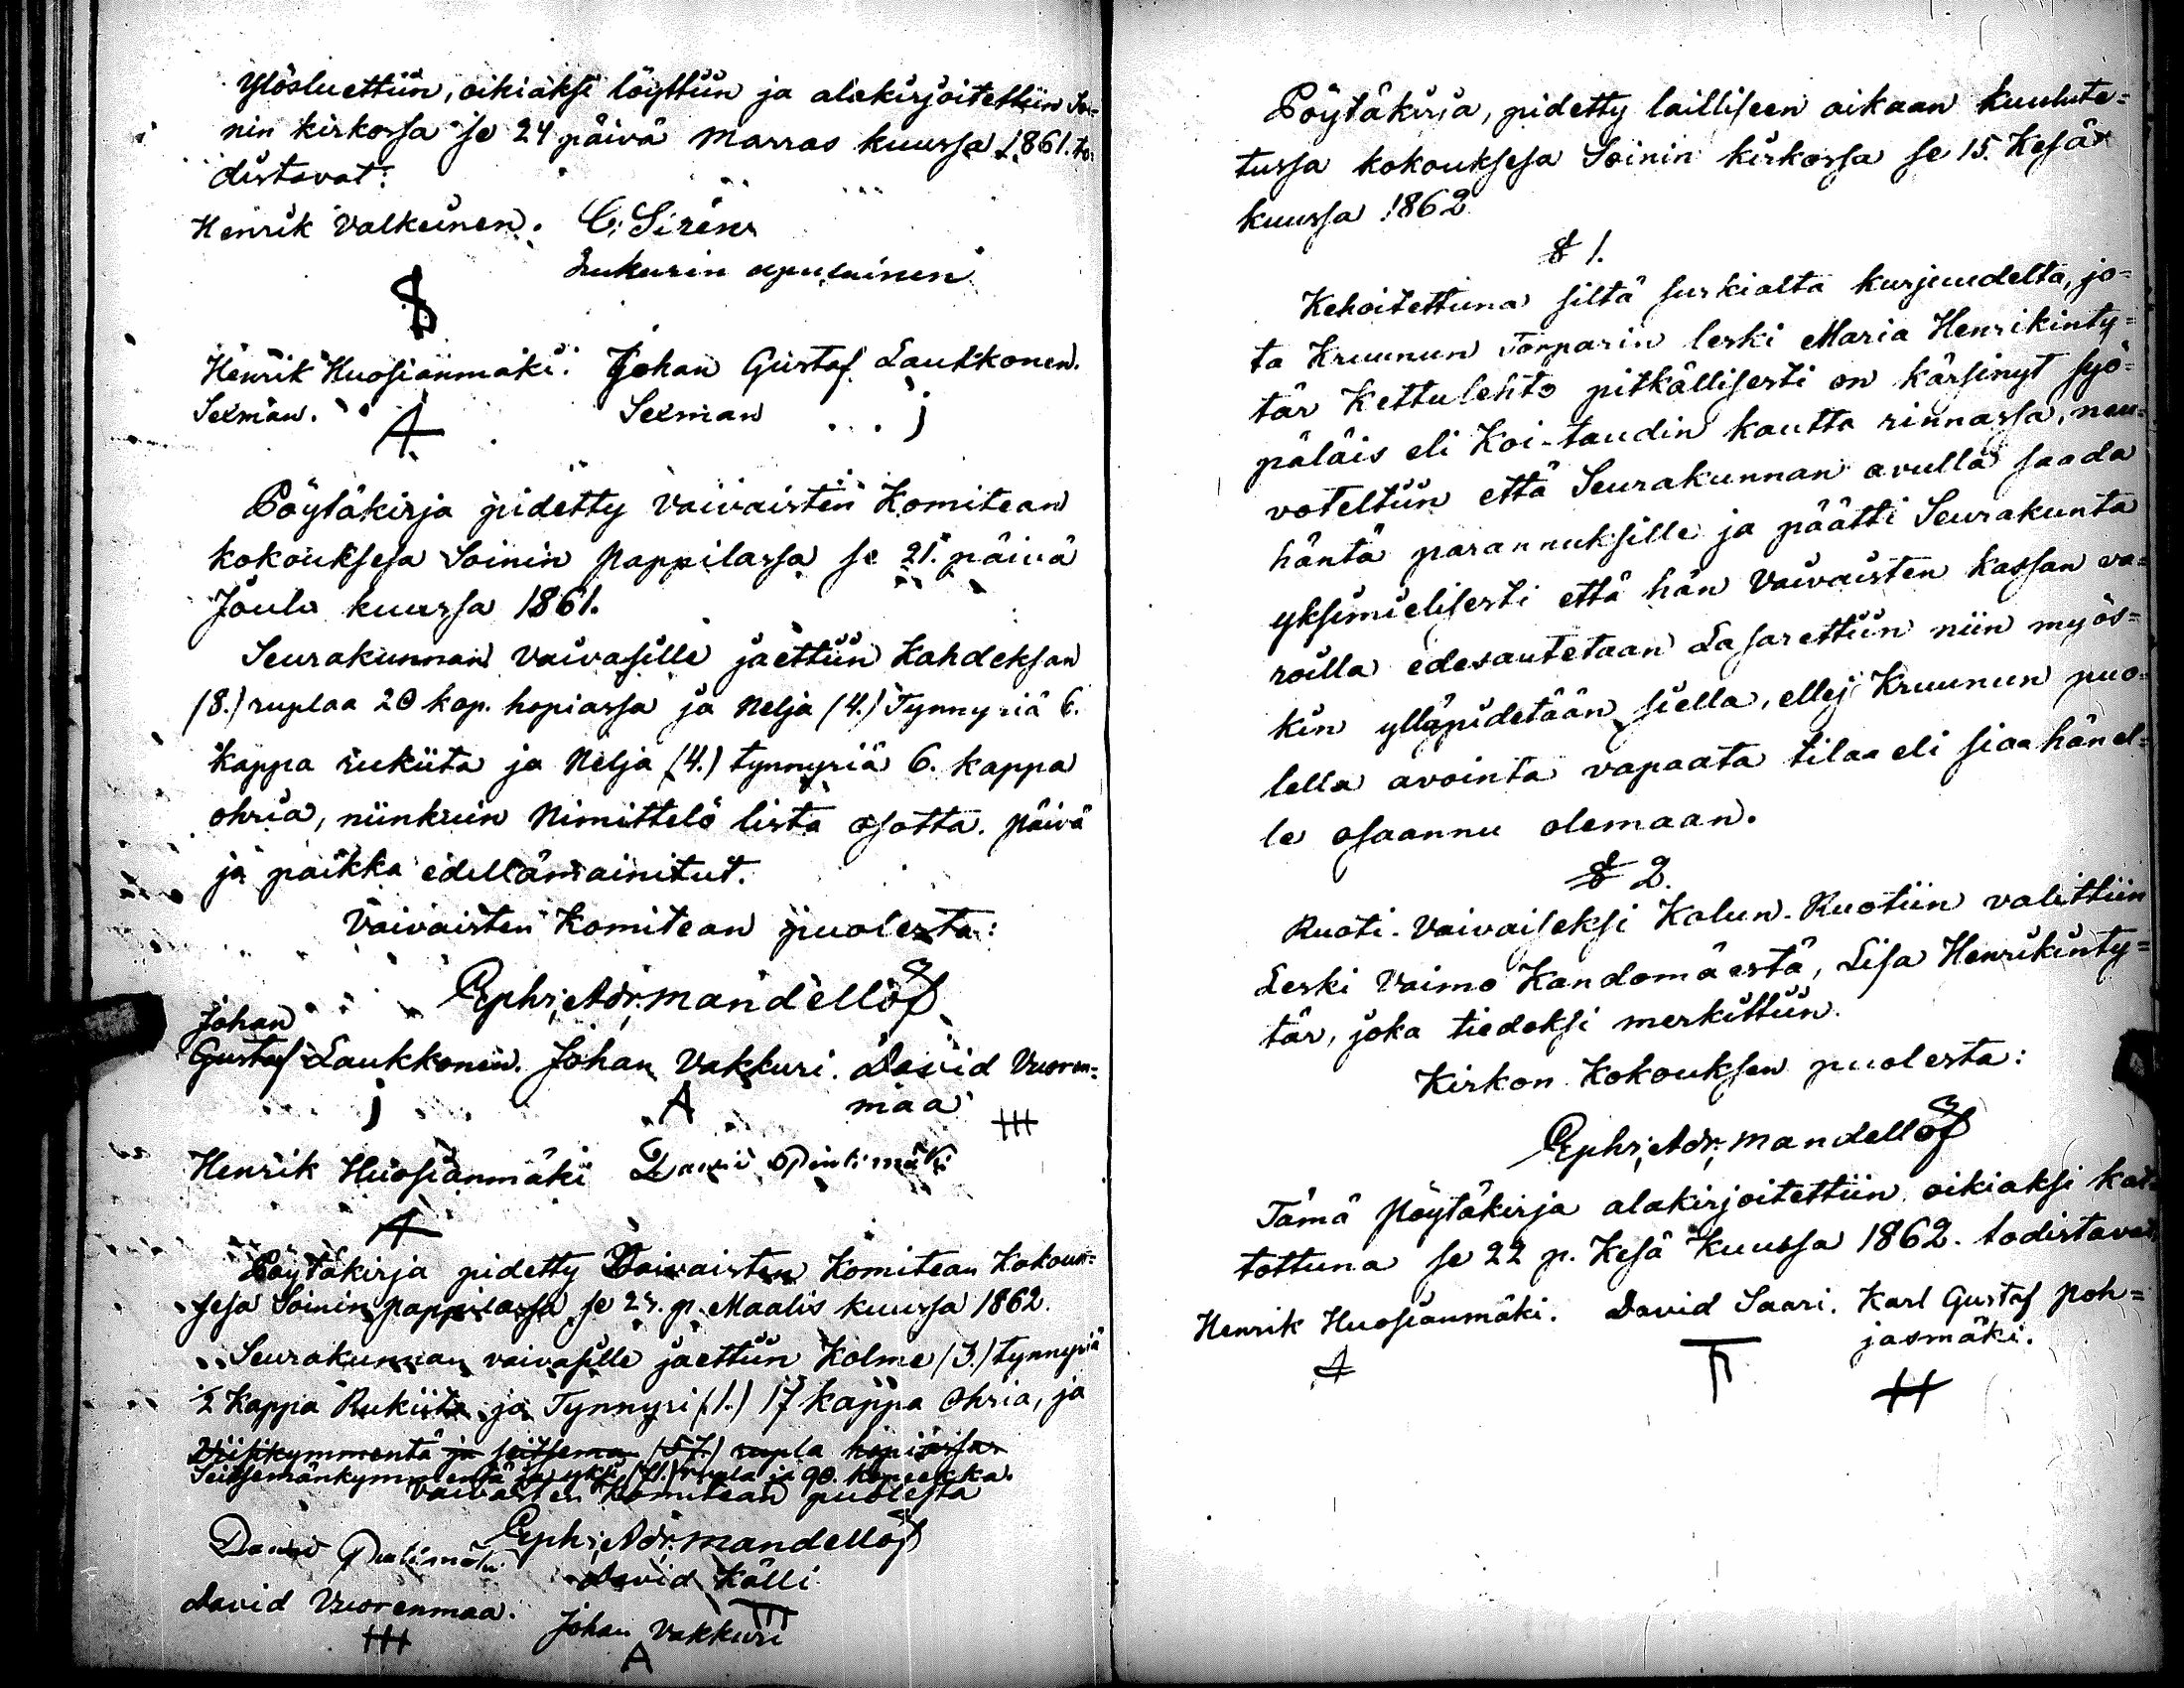 Ylösluettiin, oikiaksi löyttiin ja alakirjoitettiin Soi=
nin kirkossa se 24 päivä Marras kuussa 1861. to=
distavat:
Henrik Valkeinen. C. Sirén
Lukurin apulainen
Henrik Huosianmäki. Johan Gustaf Laukkonen.
Sexman. A Sexman j
Pöytäkirja pidetty Vaivaisten Komitean
kokouksesa Soinin Pappilassa se 21. päivä
Joulu kuussa 1861.
Seurakunnan Vaivasille jaettiin Kahdeksan
(8.) ruplaa 20 kop. hopiassa ja Nelja (4.) Tynnyriä 6.
kappa rukiita ja Nelja (4.) tynnyriä 6. kappa
ohria, niinkuin Nimittelö lista osotta. Päivä
ja paikka edellämainitut.
Vaivaisten Komitean puolesta:
Ephr; Adr; Mandellöf
Johan
Gustaf Laukkonen. Johan Vakkuri. David Vuoren=
j A maa
Henrik Huosianmäki David Pulimäki
A
Pöytäkirja pidetty Vaivaisten Komitean Kokouk=
sesa Soinin pappilassa se p. Maalis kuussa 1862.
Seurakunnan vaivasille jaettiin Kolme (3.) tynnyriä
½ Kappa Rukiita ja Tynnyri (1.) 17 kappa Ohria, ja
Viisikymmentä ja seitsemä (57.) rupla hopiassa
Seitsemänkymmentä ja yksi (71.) rupla ja 90. kopeekka.
Vaivaisten Komitean puolesta
Ephr; Adr; Mandellöf
David Pulimäki
David Källi
David Vuorenmaa.
Johan Vakkuri
A
Pöytäkirja, pidetty lailliseen aikaan kuulute=
tussa kokouksesa Soinin kirkossa se 15. Kesä
kuussa 1862
§ 1.
Kehoitettuna siltä surkialta kurjuudelta, jo=
ta Kruunun Torparin leski Maria Henrikinty=
tär Kettulehto pitkällisesti on kärsinyt syö=
päläis eli Koi-taudin kautta rinnassa, neu=
voteltiin että Seurakunnan avulla saada
häntä parannuksille ja päätti Seurakunta
yksimielisesti että hän Vaivaisten kassan va=
roilla edesautetaan Lasarettiin niin myös=
kin ylläpidetään siella, ellej Kruunun puo=
lella avointa vapaata tilaa eli siaa hänel=
le osaannu olemaan.
§ 2.
Ruoti-Vaivaiseksi Kalun-Ruotiin valittiin
Leski Vaimo Kandomäestä, Lisa Henrikinty=
tär, joka tiedoksi merkittiin.
Kirkon Kokouksen puolesta:
Ephr; Adr; Mandellöf
Tämä Pöytäkirja alakirjoitettiin oikiaksi kat=
tottuna se 22 p. Kesä Kuussa 1862. todistavat,
Henrik Huosianmäki. David Saari. Karl Gustaf Poh=
jasmäki.
A